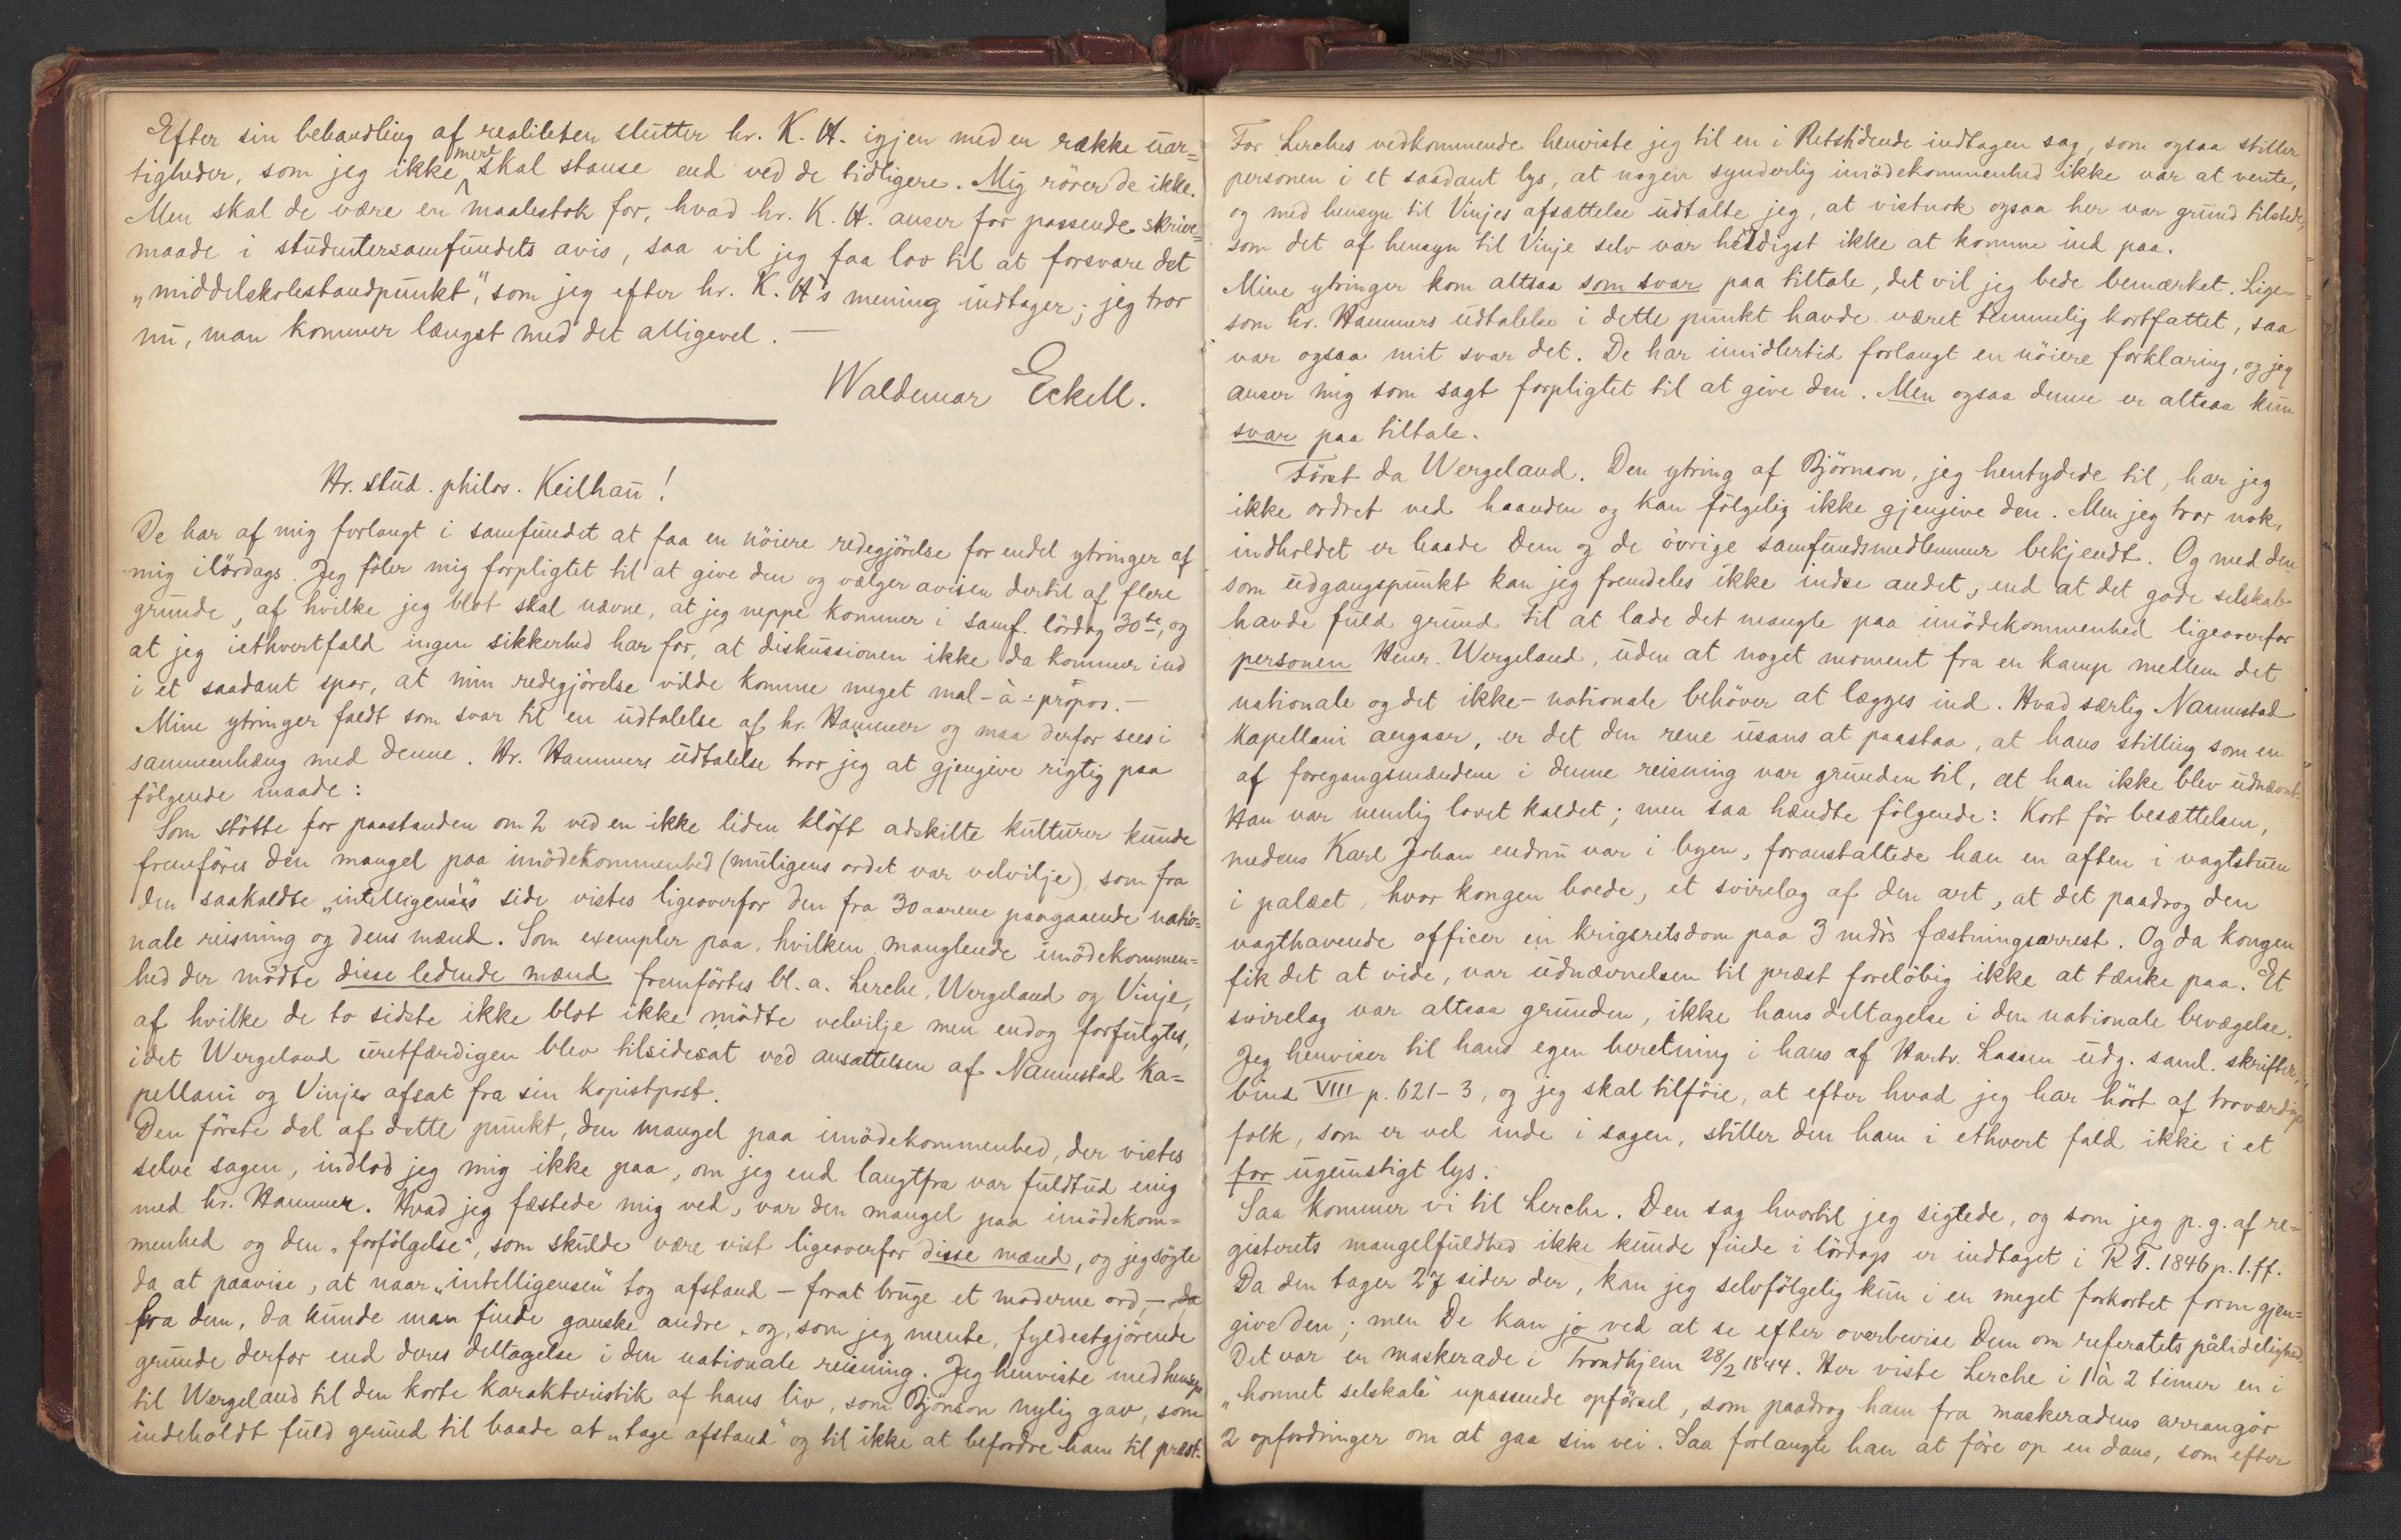 Efter sin behandling af realiteten slutter hr. K. H. igjen med en række uar=
tigheder, som jeg ikke mere skal stanse end ved de tidligere. Mig rörer de ikke.
Men skal de være en maalestok for, hvad hr. K. H. anser for passende skrive=
maade i studentersamfundets avis, saa vil jeg faa lov til at forsvare det
„middelskolestandpunkt“, som jeg efter hr. K. H's mening indtager; jeg tror
nu, man kommer længst med det alligevel. —
Waldemar Eckell.
Hr. stud. philos. Keilhau!
De har af mig forlangt i samfundet at faa en nöiere redegjörelse for endel ytringer af
mig ilördags. Jeg föler mig forpligtet til at give den og vælger avisen dertil af flere
grunde, af hvilke jeg blot skal nævne, at jeg neppe kommer i samf. lördag 30te, og
at jeg iethvertfald ingen sikkerhed har for, at diskussionen ikke da kommer ind
i et saadant spor, at min redegjörelse vilde komme meget mal-à-propos. —
Mine ytringer faldt som svar til en udtalelse af hr. Hammer og maa derfor sees i
sammenhæng med denne. Hr. Hammers udtalelse tror jeg at gjengive rigtig paa
fölgende maade:
Som stötte for paastanden om 2 ved en ikke liden klöft adskilte kulturer kunde
fremföres den mangel paa imödekommenhed (muligens ordet var velvilje), som fra
den saakaldte „intelligensis“ side vistes ligeoverfor den fra 30 aarene paagaaende natio=
nale reisning og dens mænd. Som exempler paa, hvilken manglende imödekommen=
hed der mödte disse ledende mænd fremförtes bl. a. Lerche, Wergeland og Vinje,
af hvilke de to sidste ikke blot ikke mödte velvilje men endog forfulgtes,
idet Wergeland uretfærdigen blev tilsidesat ved ansættelsen af Nannestad ka=
pellani og Vinjes afsat fra sin kopistpost.
Den förste del af dette punkt, den mangel paa imödekommenhed, der vistes
selve sagen, indlod jeg mig ikke paa, om jeg end langtfra var fuldtud enig
med hr. Hammer. Hvad jeg fæstede mig ved, var den mangel paa imödekom=
menhed og den „forfölgelse“, som skulde være vist ligeoverfor disse mænd, og jeg sögte
da at paavise, at naar „intelligensen“ tog afstand – forat bruge et moderne ord, – da
fra dem, da kunde man finde ganske andre, og, som jeg mente, fyldestgjörende
grunde derfor end deres deltagelse i den nationale reisning. Jeg henviste med hensyn
til Wergeland til den korte karakteristik af hans liv, som Björnson nylig gav, som
indeholdt fuld grund til baade at „tage afstand“ og til ikke at befordre ham til præst.
For Lerches vedkommende henviste jeg til en i Retstidende indtagen sag, som ogsaa stiller
personen i et saadant lys, at nogen synderlig imödekommenhed ikke var at vente,
og med hensyn til Vinjes afsættelse udtalte jeg, at vistnok ogsaa her var grund tilstede,
som det af hensyn til Vinje selv var heldigst ikke at komme ind paa.
Mine ytringer kom altsaa som svar paa tiltale, det vil jeg bede bemærket. Lige=
som hr. Hammers udtalelse i dette punkt havde været temmelig kortfattet, saa
var ogsaa mit svar det. De har imidlertid forlangt en nöiere forklaring, og jeg
anser mig som sagt forpligtet til at give den. Men ogsaa denne er altsaa kun
svar paa tiltale.
Först da Wergeland. Den ytring af Björnson, jeg hentydede til, har jeg
ikke ordret ved haanden og kan fölgelig ikke gjengive den. Men jeg tror nok,
indholdet er baade Dem og de övrige samfundsmedlemmer bekjendt. Og med den
som udgangspunkt kan jeg fremdeles ikke indse andet, end at det gode selskab
havde fuld grund til at lade det mangle paa imödekommenhed ligeoverfor
personen Henr. Wergeland, uden at noget moment fra en kamp mellem det
nationale og det ikke-nationale behöver at lægges ind. Hvad særlig Nannestad
kapellani angaar, er det den rene usans at paastaa, at hans stilling som en
af foregangsmændene i denne reisning var grunden til, at han ikke blev udnævnt.
Han var nemlig lovet kaldet; men saa hændte fölgende: Kort för besættelsen,
medens Karl Johan endnu var i byen, foranstaltede han en aften i vagtstuen
i palæet, hvor kongen boede, et svirelag af den art, at det paadrog den
vagthavende officer en krigsretsdom paa 3 mdrs fæstningsarrest. Og da kongen
fik det at vide, var udnævnelsen til præst forelöbig ikke at tænke paa. Et
svirelag var altsaa grunden, ikke hans deltagelse i den nationale bevægelse.
Jeg henviser til hans egen beretning i hans af Hartv. Lassen udg. saml. skrifter,
bind VIII p. 621-3, og jeg skal tilföie, at efter hvad jeg har hört af troværdige
folk, som er vel inde i sagen, stiller den ham i ethvert fald ikke i et
for ugunstigt lys.
Saa kommer vi til Lerche. Den sag hvortil jeg sigtede, og som jeg p. g. af re=
gisterets mangelfuldhed ikke kunde finde i lördags er indtaget i R.T. 1846 p. 1. ff.
Da den tager 27 sider der, kan jeg selvfölgelig kun i en meget forkortet form gjen=
give den; men De kan jo ved at se efter overbevise Dem om referatets pålidelighed.
Det var en maskerade i Trondhjem 28/2 1844. Her viste Lerche i 1 à 2 timer en i
„honnet selskab“ upassende opförsel, som paadrog ham fra maskeradens arrangör
2 opfordringer om at gaa sin vei. Saa forlangte han at före op en dans, som efter